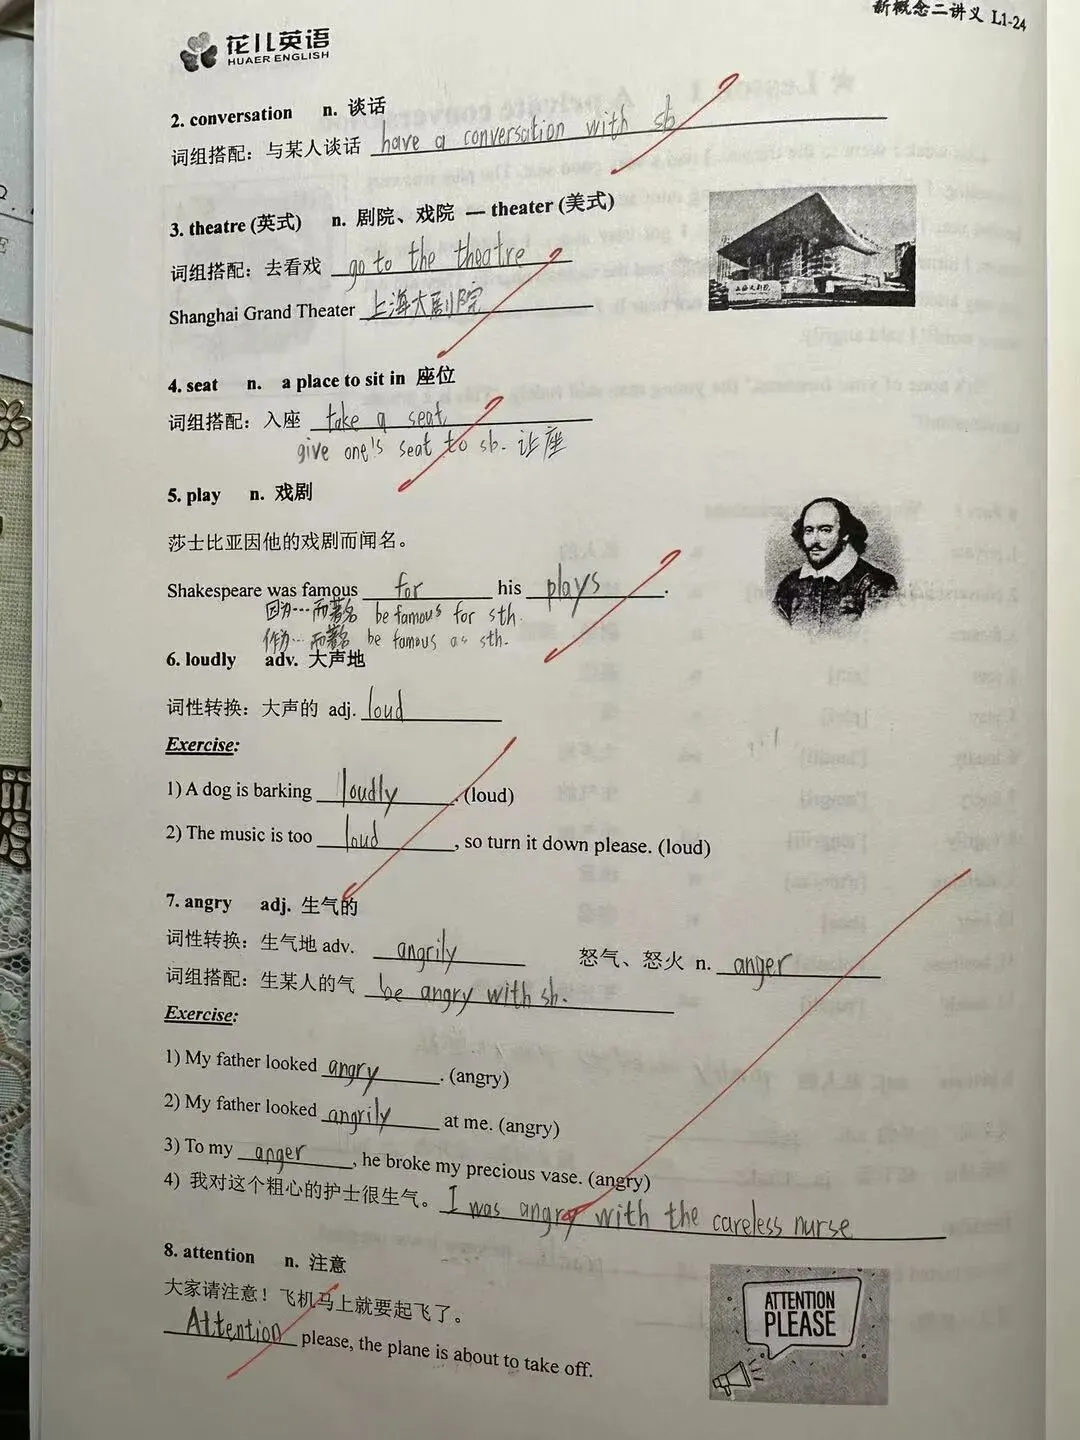 新概念二讲义 L1-24
花儿英语
HUAER ENGLISH
2. conversation n. 谈话
词组搭配：与某人谈话 have a conversation with sb
3. theatre (英式) n. 剧院、戏院 — theater (美式)
词组搭配：去看戏 go to the theatre
Shanghai Grand Theater 上海大剧院
上海大剧院
4. seat n. a place to sit in 座位
词组搭配：入座 take a seat
give one's seat to sb. 让座
5. play n. 戏剧
莎士比亚因他的戏剧而闻名。
Shakespeare was famous for his plays.
因为…而著名 be famous for sth.
作为…而著名 be famous as sth.
6. loudly adv. 大声地
词性转换：大声的 adj. loud
Exercise:
1) A dog is barking loudly. (loud)
2) The music is too loud, so turn it down please. (loud)
7. angry adj. 生气的
词性转换：生气地 adv. angrily 怒气、怒火 n. anger
词组搭配：生某人的气 be angry with sb.
Exercise:
1) My father looked angry. (angry)
2) My father looked angrily at me. (angry)
3) To my anger, he broke my precious vase. (angry)
4) 我对这个粗心的护士很生气。 I was angry with the careless nurse
8. attention n. 注意
大家请注意！飞机马上就要起飞了。
Attention please, the plane is about to take off.
ATTENTION
PLEASE